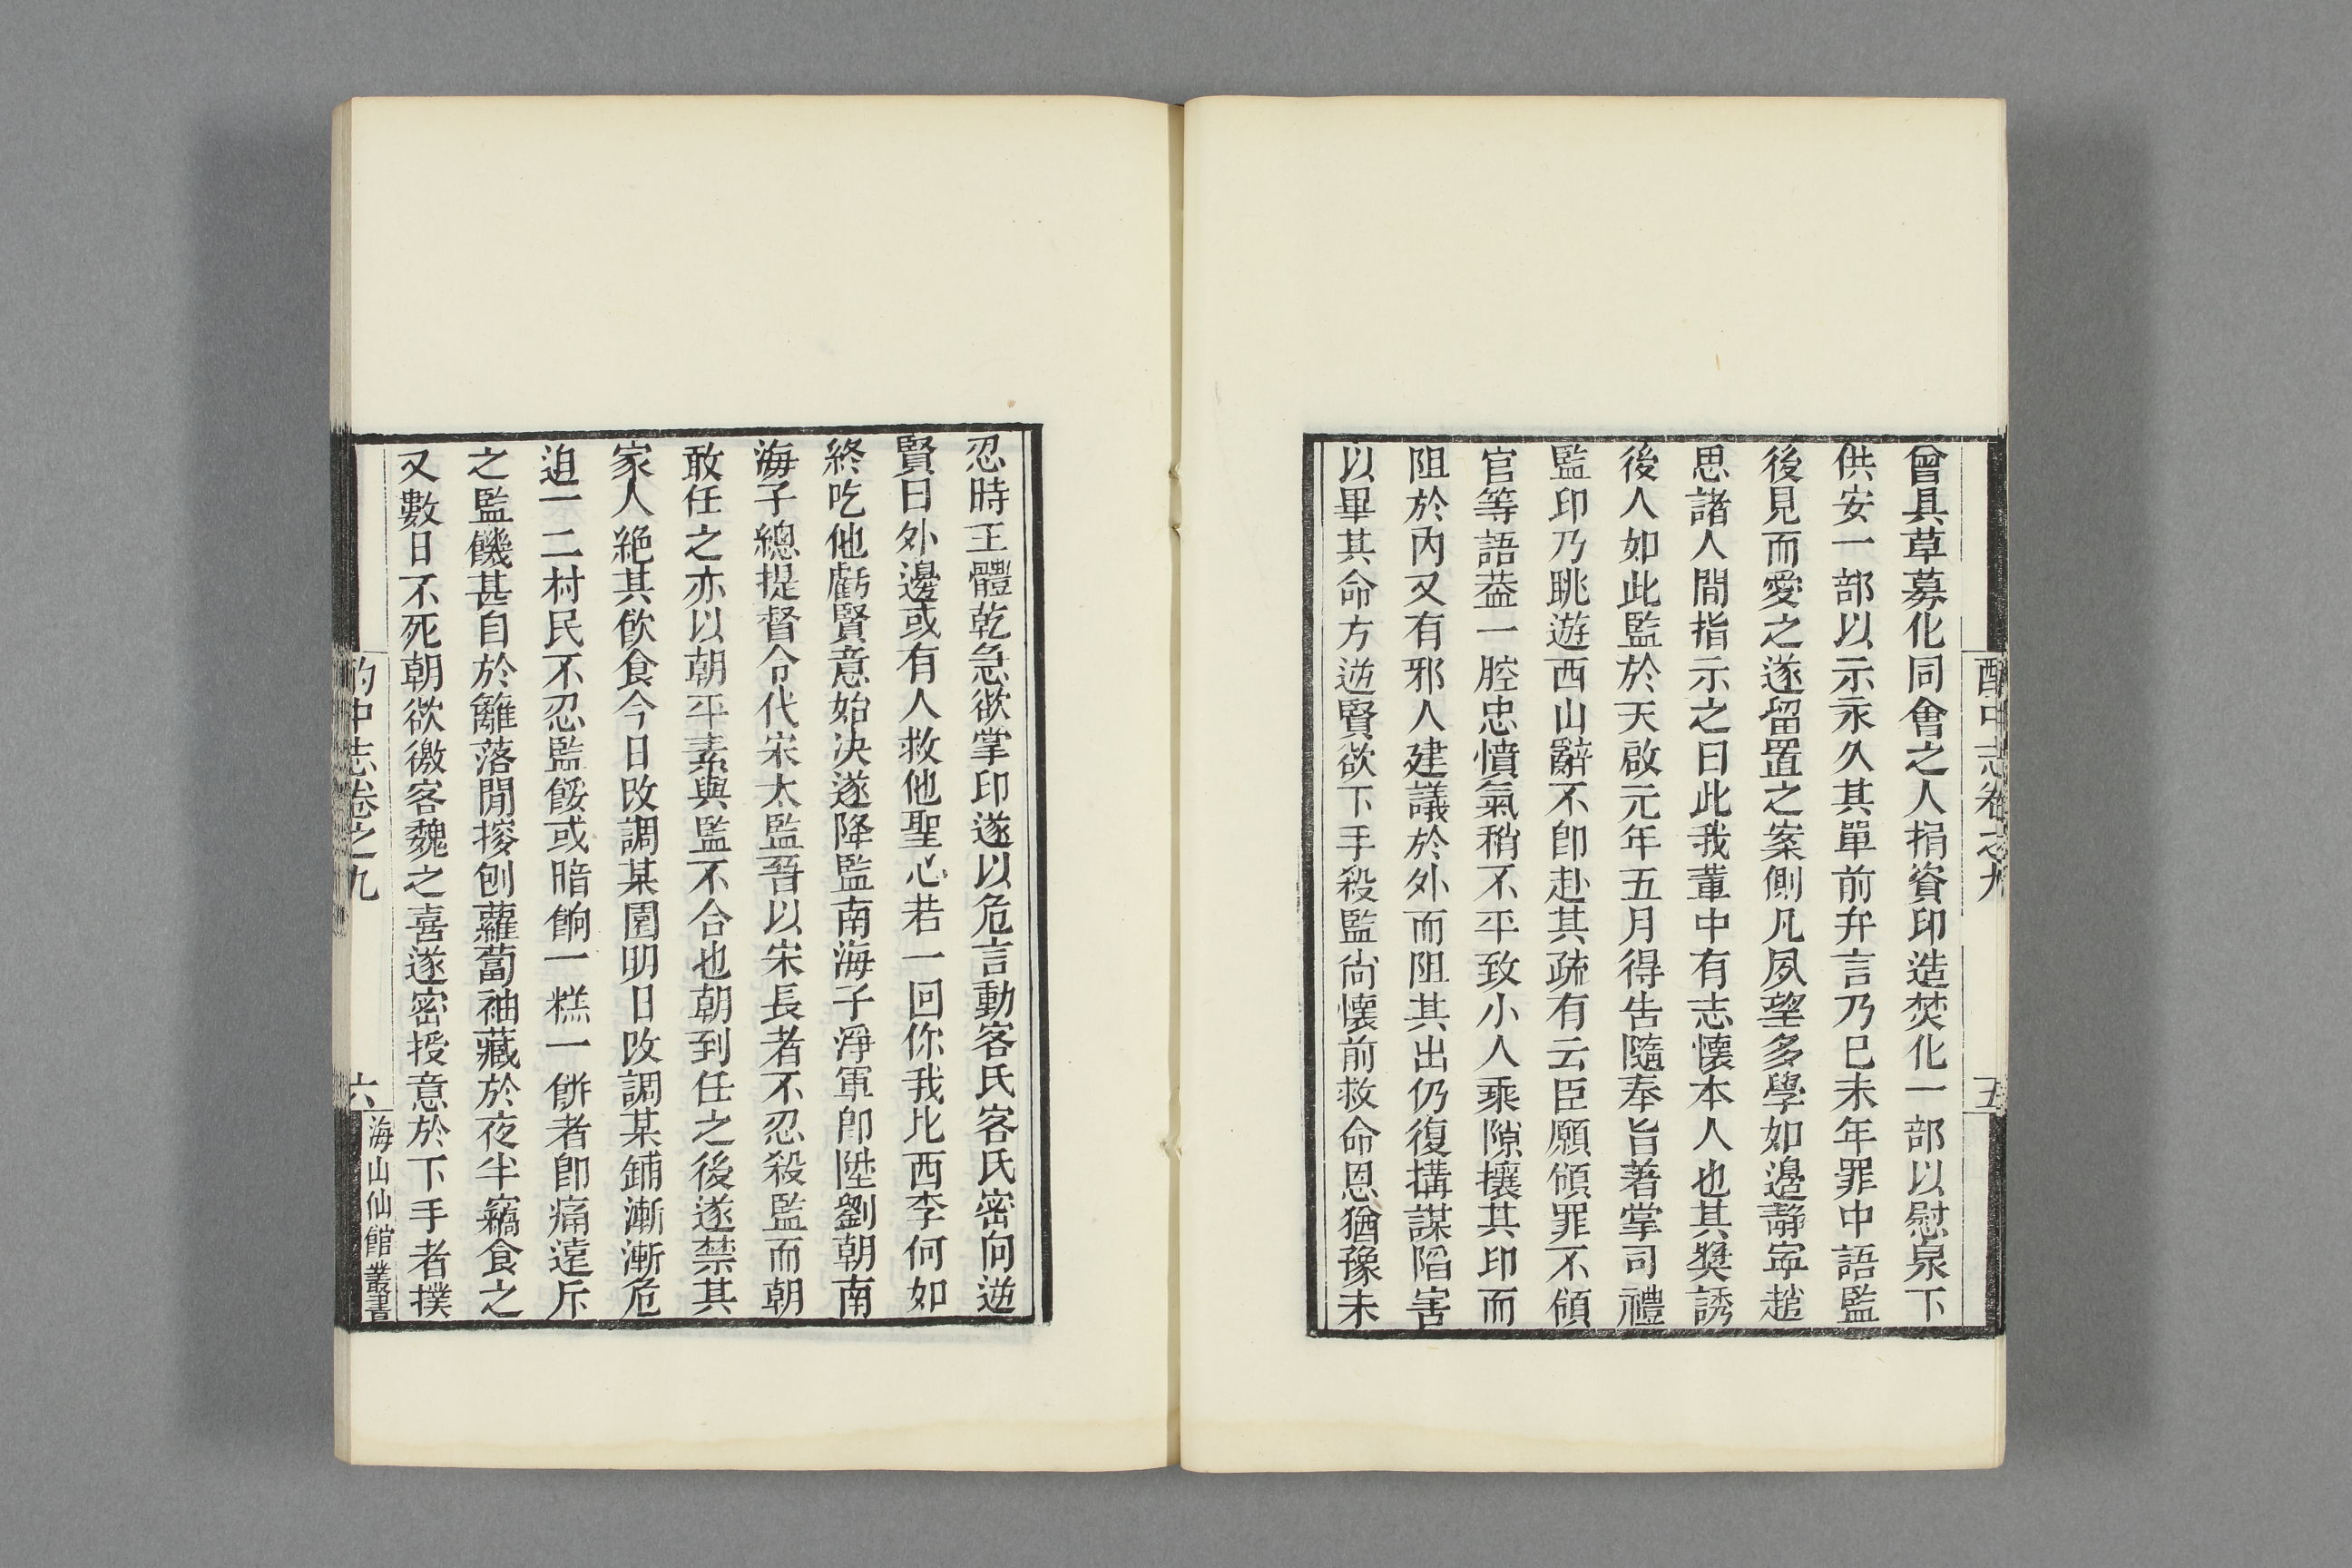 酌中志卷之九
五
曾具草募化同會之人捐資印造焚化一部以慰泉下
供安一部以示永久其單前弁言乃巳未年罪中語監
後見而愛之遂留置之案側凡夙望多學如邊靜寧趙
思諸人間指示之曰此我輩中有志懷本人也其獎誘
後人如此監於天啟元年五月得告隨奉旨著掌司禮
監印乃眺遊西山辭不卽赴其疏有云臣願領罪不領
官等語葢一腔忠憤氣稍不平致小人乘隙攘其印而
阻於內又有邪人建議於外而阻其出仍復搆謀陷害
以畢其命方逆賢欲下手殺監尚懷前救命恩猶豫未
忍時王體乾急欲掌印遂以危言動客氏客氏密向逆
賢曰外邊或有人救他聖心若一回你我比西李何如
終吃他虧賢意始決遂降監南海子淨軍卽陞劉朝南
海子總提督令代宋太監晉以宋長者不忍殺監而朝
敢任之亦以朝平素與監不合也朝到任之後遂禁其
家人絕其飲食今日改調某園明日改調某鋪漸漸危
迫一二村民不忍監餒或暗餉一糕一餅者卽痛遠斥
之監饑甚自於籬落間㨰刨蘿蔔袖藏於夜半竊食之
又數日不死朝欲徼客魏之喜遂密授意於下手者撲
酌中志卷之九
六
海山仙館叢書